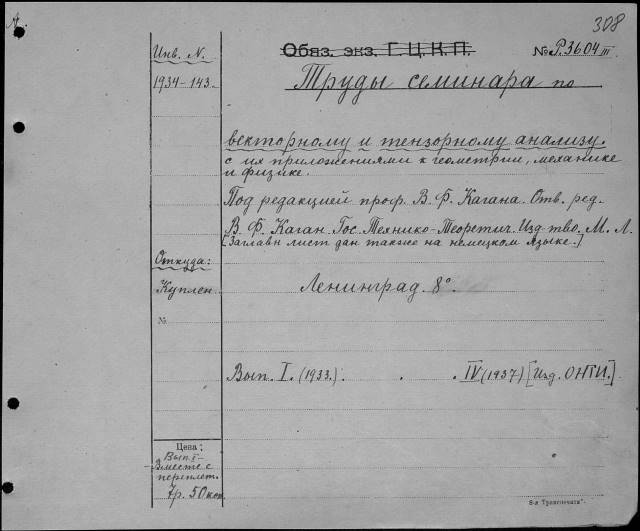 308
Инв. N.
1934-143.
Обяз. экз. Г. Ц. К. П.
№ Р.3604 III
Труды семинара по
векторному и тензорному анализу.
с их приложениями к геометрии, механике
и физике.
Под редакцией проф. В. Ф. Кагана. Отв. ред.
В. Ф. Каган. Гос. Технико-Теоретич. Изд-тво. М. Л.
[Заглавн лист дан также на немецком языке.]
Откуда:
Куплен.
Ленинград. 8°.
№
Вып. I. (1933.) . . IV (1937) [Изд. ОНТИ.]
Цена:
Вып. I-
Вместе с
переплет.
7р. 50 коп.
8-я Транспечать".